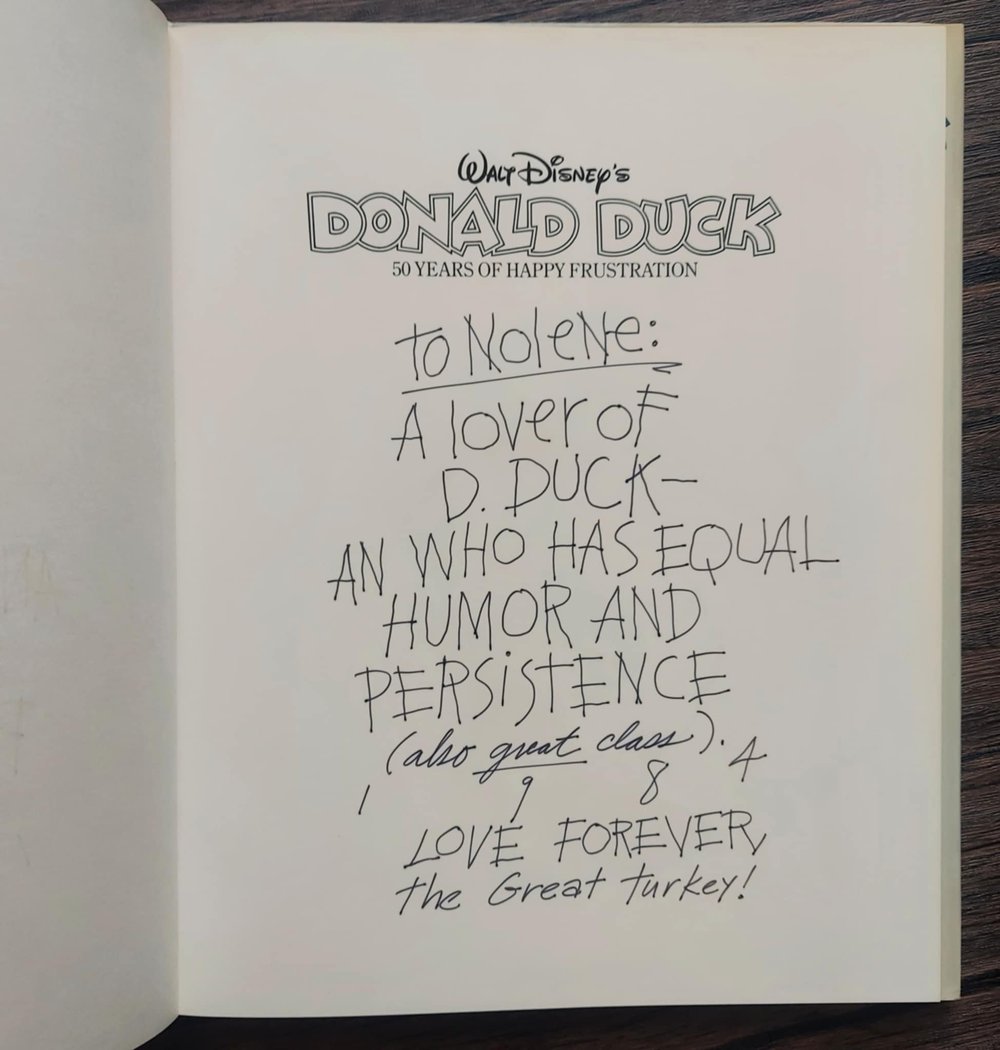 WALT DISNEY'S
DONALD DUCK
50 YEARS OF HAPPY FRUSTRATION
to Nolene:
A lover of
D. DUCK—
AN WHO HAS EQUAL
HUMOR AND
PERSiSTENCE
(also great class).
1 9 8 4
LOVE FOREVER,
the Great turkey!